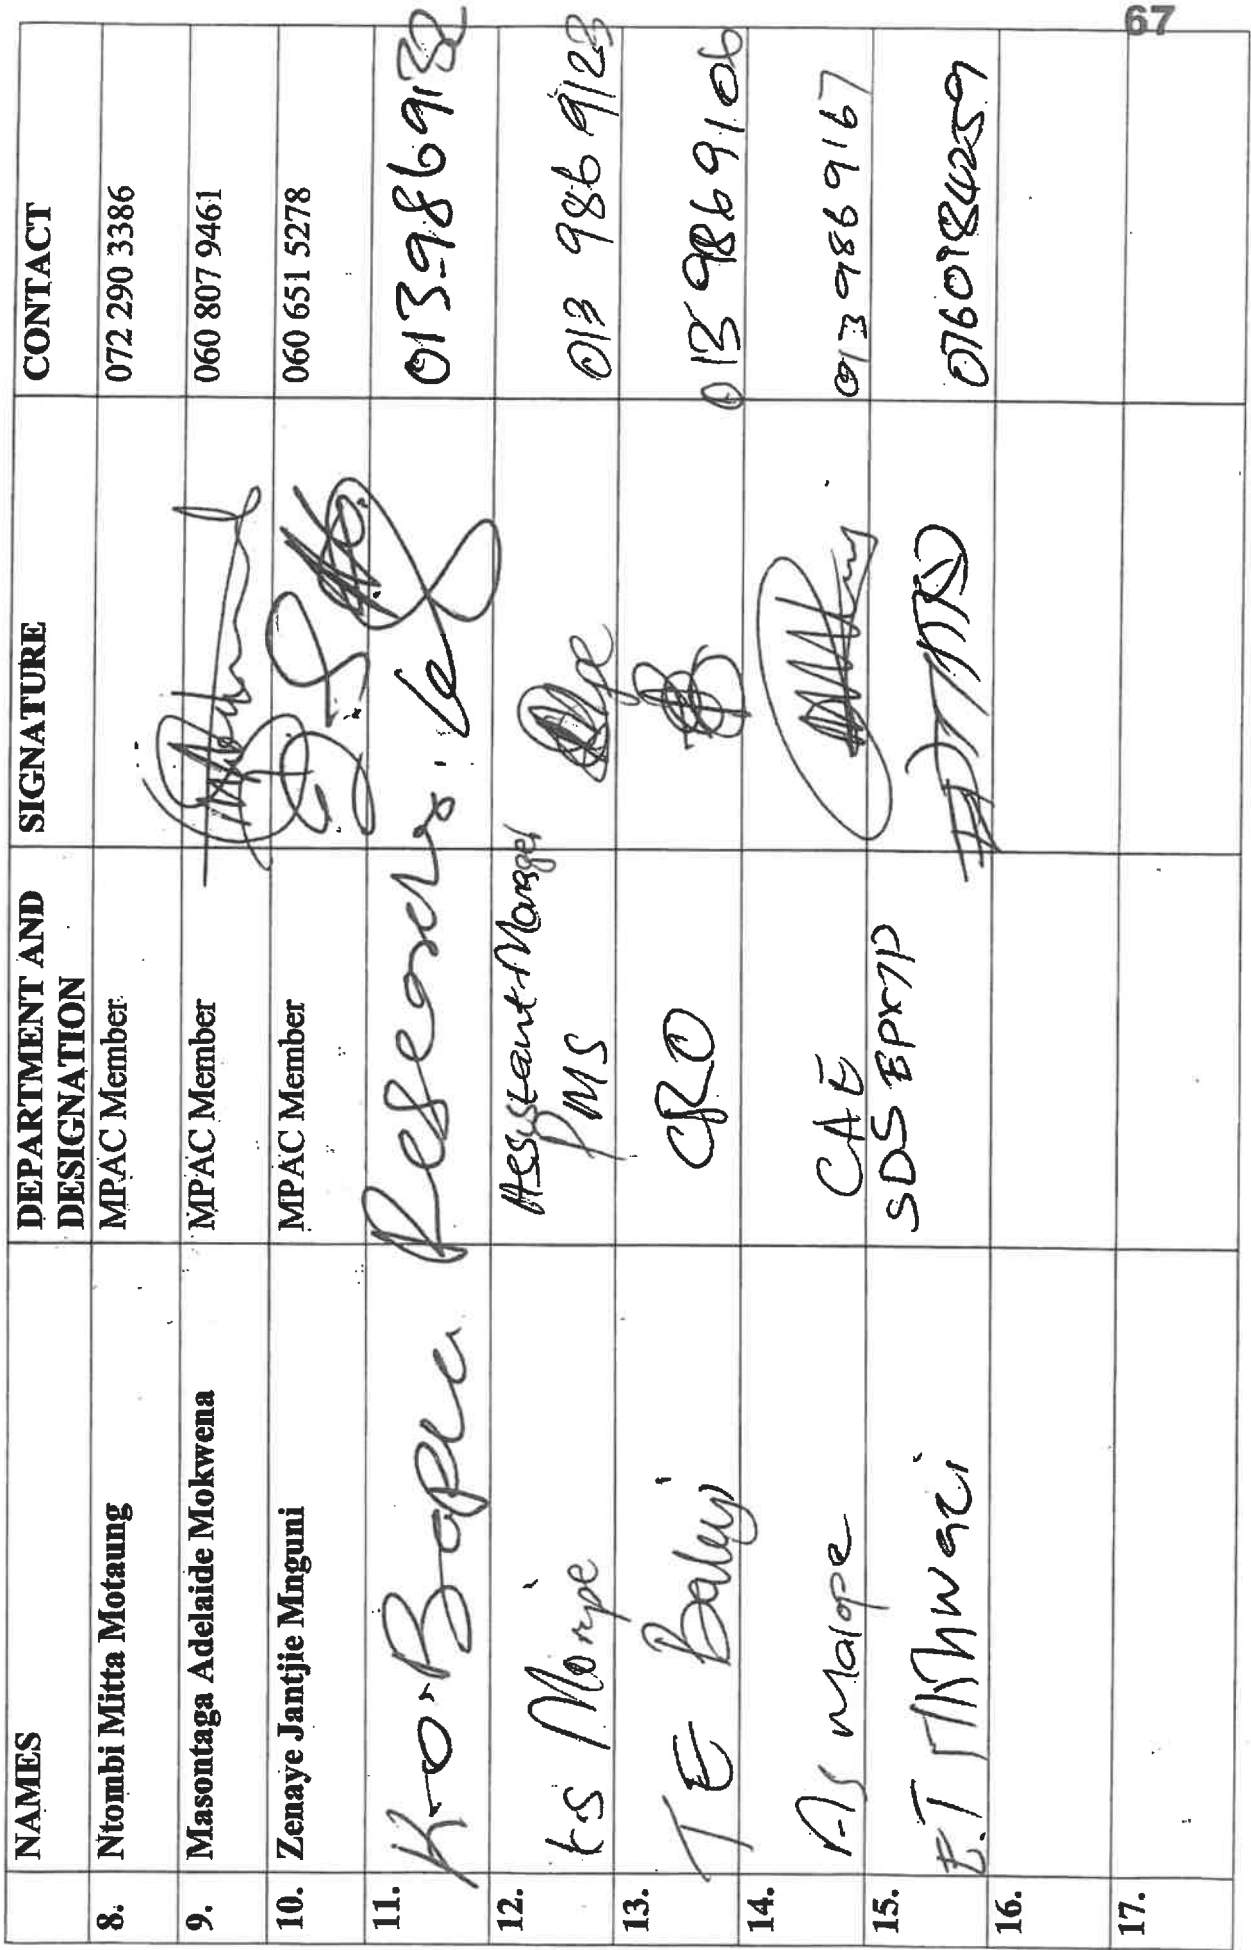 67
NAMES DEPARTMENT AND DESIGNATION SIGNATURE CONTACT
8. Ntombi Mitta Motaung MPAC Member 072 290 3386
9. Masontaga Adelaide Mokwena MPAC Member 060 807 9461
10. Zenaye Jantjie Mnguni MPAC Member 060 651 5278
11. K.O. Bapela Researcher 013 986 9132
12. KS Moripe Assistant Manager PMS 013 986 9123
13. T E Baloyi CRO 013 986 9106
14. AS Malope CAE 013 986 9167
15. E.T SDS 0760184259
16.
17.